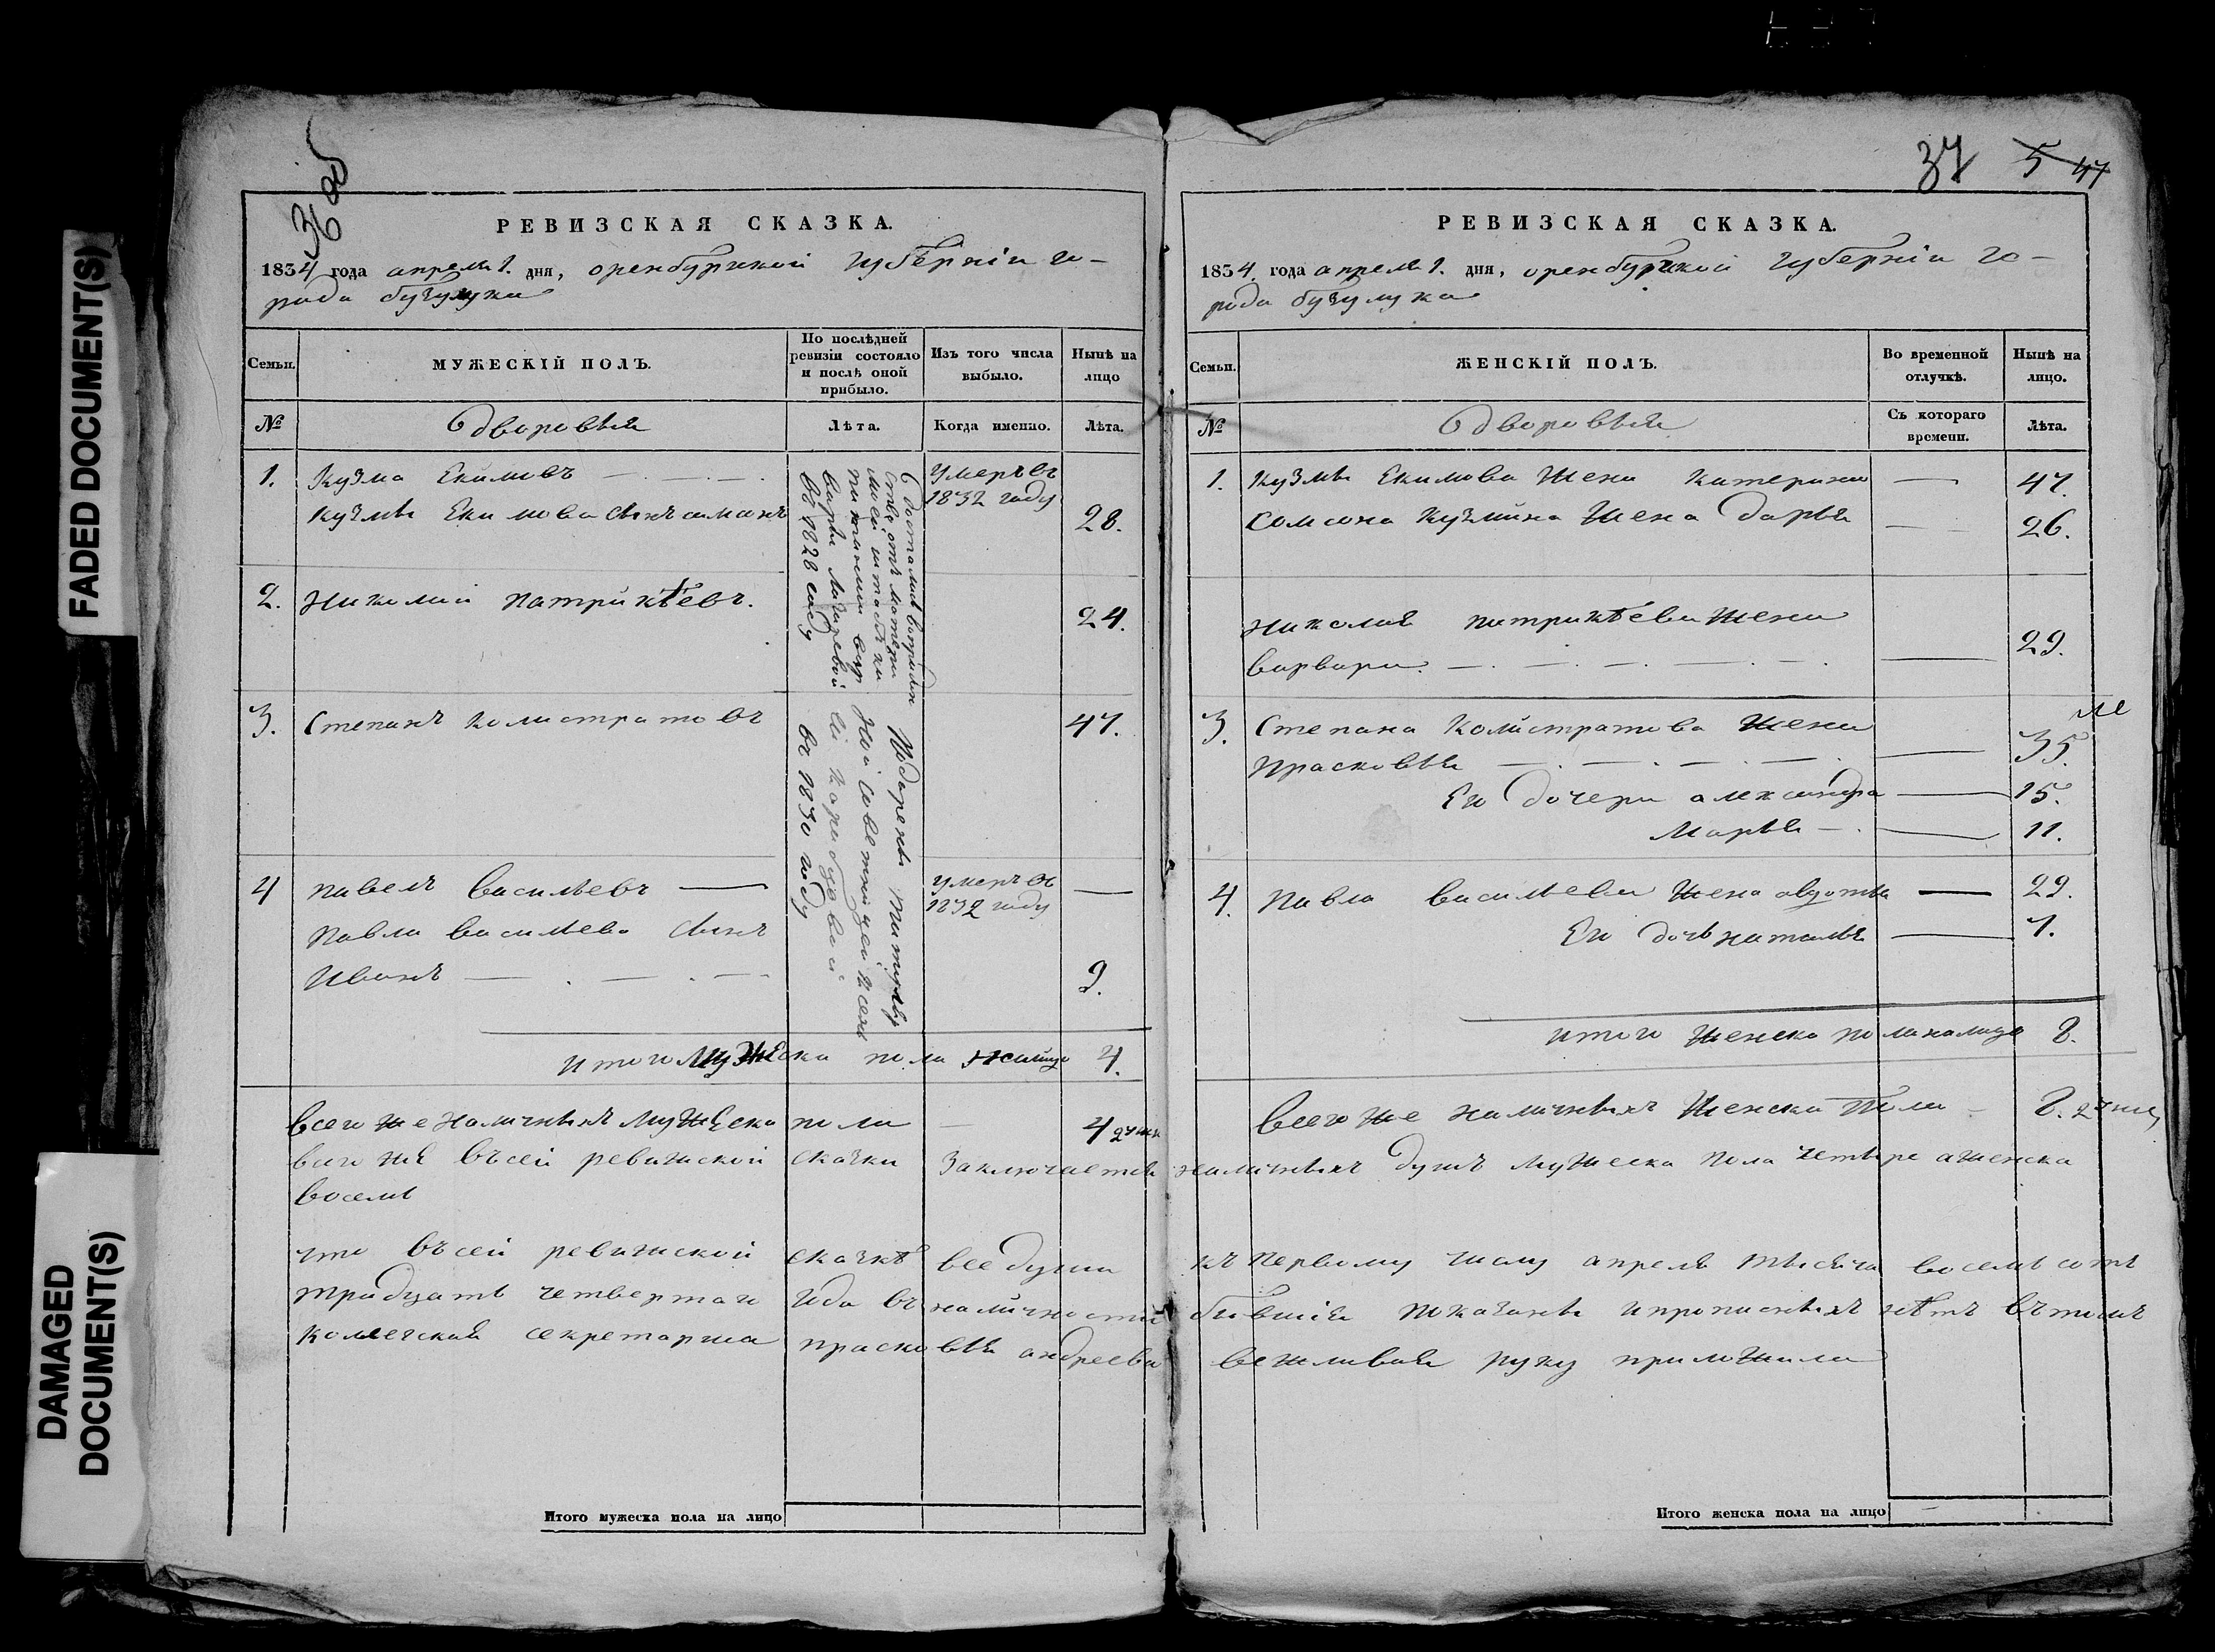 FADED DOCUMENT(S)
DAMAGED
DOCUMENT(S)
36 об
РЕВИЗСКАЯ СКАЗКА.
1834 года апреля 1. дня, оренбургской губерніи го-
рода бузулука
Семьи.
МУЖЕСКІЙ ПОЛЪ.
По послѣдней
ревизіи состояло
и послѣ оной
прибыло.
Изъ того числа
выбыло.
Нынѣ на
лицо
№
О дворовыя
Лѣта.
Когда именно.
Лѣта.
1. Кузма Екимовъ
умеръ въ
1832 году
кузмы Екимова сынъ самсонъ
28.
2. Николай патрикѣевъ.
24.
3. Степанъ Колистратовъ
47.
4 павелъ васильевъ
умеръ въ
1832 году
павла васильева сынъ
Иванъ
9.
отъ матери
въ 1828 году
Подарены
въ 1830 году
итого мужеска пола налицо 4.
всего же наличныхъ мужеска пола 4
всего же въсей ревижской сказки заключается
восемь
что въсей ревижской сказкѣ все души
тридцать четвертаго года въ наличности
колежская секретарша прасковья андреева
Итого мужеска пола на лицо
37 5 47
РЕВИЗСКАЯ СКАЗКА.
1834. года апреля 1. дня, оренбургской губерніи го-
рода бузулука
Семьи.
ЖЕНСКІЙ ПОЛЪ.
Во временной
отлучкѣ.
Нынѣ на
лицо.
№
О дворовыя
Съ котораго
времени.
Лѣта.
1. кузмы Екимова жена катерина 47.
Сомсона Кузмина жена дарья 26.
николая патрикѣева жена
варвара. 29.
3. Степана Колистратова жена
прасковья 35.
Его дочери александра 15.
Марья 11.
4. павла васильева жена авдотья 29.
Его дочь наталья 7.
итого женска пола налицо 8.
всего же наличныхъ женска пола 8.
наличныхъ душъ мужеска пола четыре аженска
къ первому числу апреля тысяча восемь сотъ
бывшія показаны ипрописныхъ нѣтъ вътомъ
вежливая руку приложила
Итого женска пола на лицо